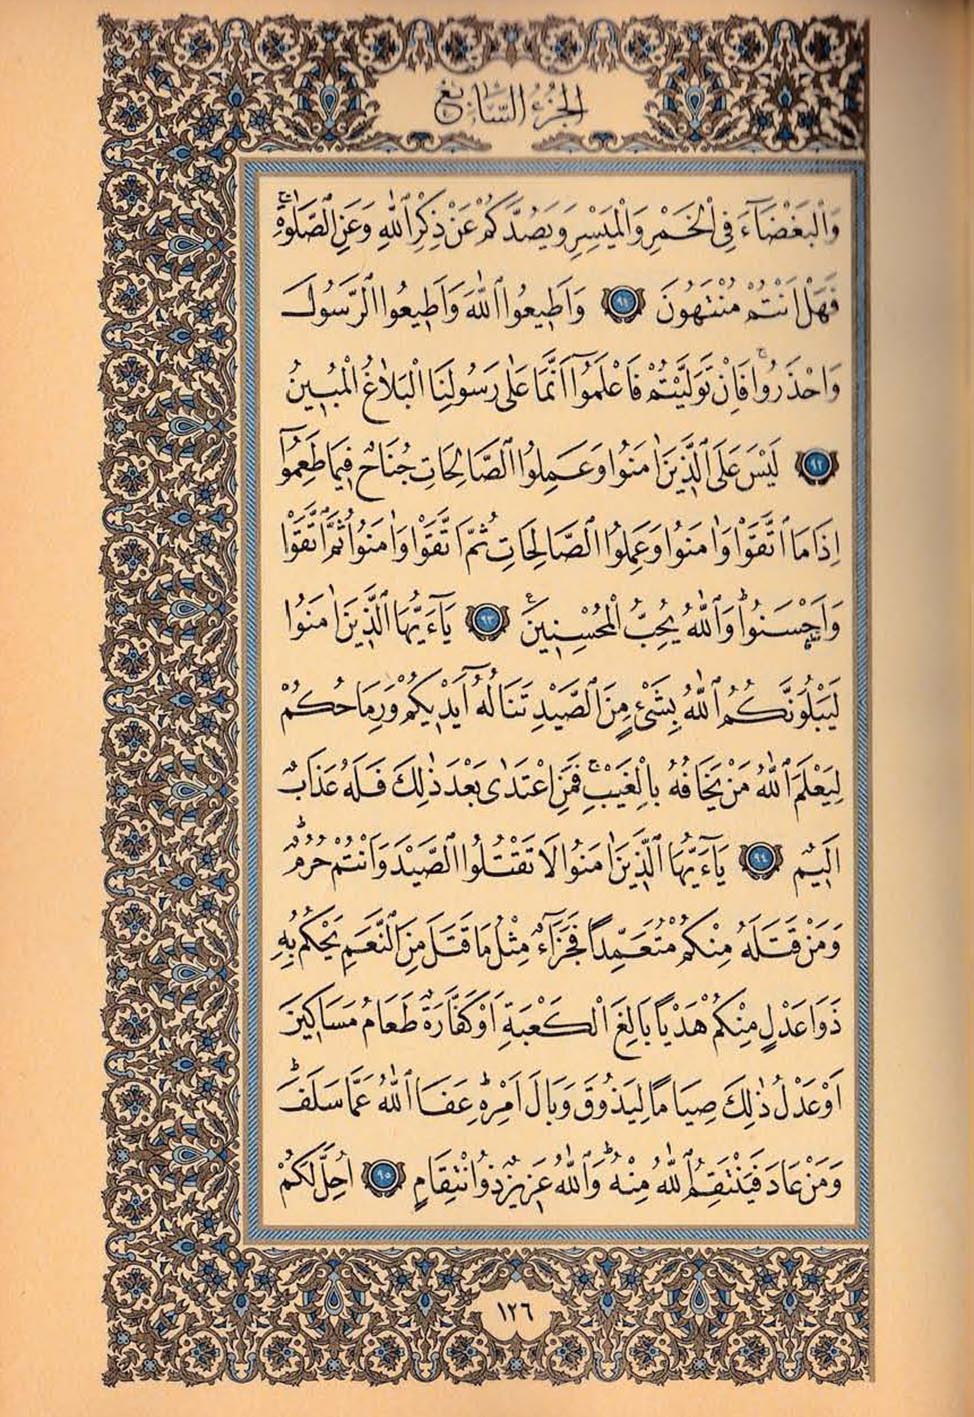 الجزء السابع
وَالْبَغْضَٓاءَ فِي الْخَمْرِ وَالْمَيْسِرِ وَيَصُدَّكُمْ عَنْ ذِكْرِ اللّٰهِ وَعَنِ الصَّلٰوةِۚ
فَهَلْ اَنْتُمْ مُنْتَهُونَ ﴿٩١﴾ وَاَطِيعُوا اللّٰهَ وَاَطِيعُوا الرَّسُولَ
وَاحْذَرُواۚ فَاِنْ تَوَلَّيْتُمْ فَاعْلَمُٓوا اَنَّمَا عَلٰى رَسُولِنَا الْبَلَاغُ الْمُبِينُ
﴿٩٢﴾ لَيْسَ عَلَى الَّذِينَ اٰمَنُوا وَعَمِلُوا الصَّالِحَاتِ جُنَاحٌ فِيمَا طَعِمُٓوا
اِذَا مَا اتَّقَوْا وَاٰمَنُوا وَعَمِلُوا الصَّالِحَاتِ ثُمَّ اتَّقَوْا وَاٰمَنُوا ثُمَّ اتَّقَوْا
وَاَحْسَنُواۜ وَاللّٰهُ يُحِبُّ الْمُحْسِنِينَ۟ ﴿٩٣﴾ يَٓا اَيُّهَا الَّذِينَ اٰمَنُوا
لَيَبْلُوَنَّكُمُ اللّٰهُ بِشَيْءٍ مِنَ الصَّيْدِ تَنَالُهُٓ اَيْدِيكُمْ وَرِمَاحُكُمْ
لِيَعْلَمَ اللّٰهُ مَنْ يَخَافُهُ بِالْغَيْبِۚ فَمَنِ اعْتَدٰى بَعْدَ ذٰلِكَ فَلَهُ عَذَابٌ
اَلِيمٌ ﴿٩٤﴾ يَٓا اَيُّهَا الَّذِينَ اٰمَنُوا لَا تَقْتُلُوا الصَّيْدَ وَاَنْتُمْ حُرُمٌۜ
وَمَنْ قَتَلَهُ مِنْكُمْ مُتَعَمِّدًا فَجَزَٓاءٌ مِثْلُ مَا قَتَلَ مِنَ النَّعَمِ يَحْكُمُ بِهِ
ذَوَا عَدْلٍ مِنْكُمْ هَدْيًا بَالِغَ الْكَعْبَةِ اَوْ كَفَّارَةٌ طَعَامُ مَسَاكِينَ
اَوْ عَدْلُ ذٰلِكَ صِيَامًا لِيَذُوقَ وَبَالَ اَمْرِهِۜ عَفَا اللّٰهُ عَمَّا سَلَفَۜ
وَمَنْ عَادَ فَيَنْتَقِمُ اللّٰهُ مِنْهُۜ وَاللّٰهُ عَزِيزٌ ذُو انْتِقَامٍ ﴿٩٥﴾ اُحِلَّ لَكُمْ
١٢٦